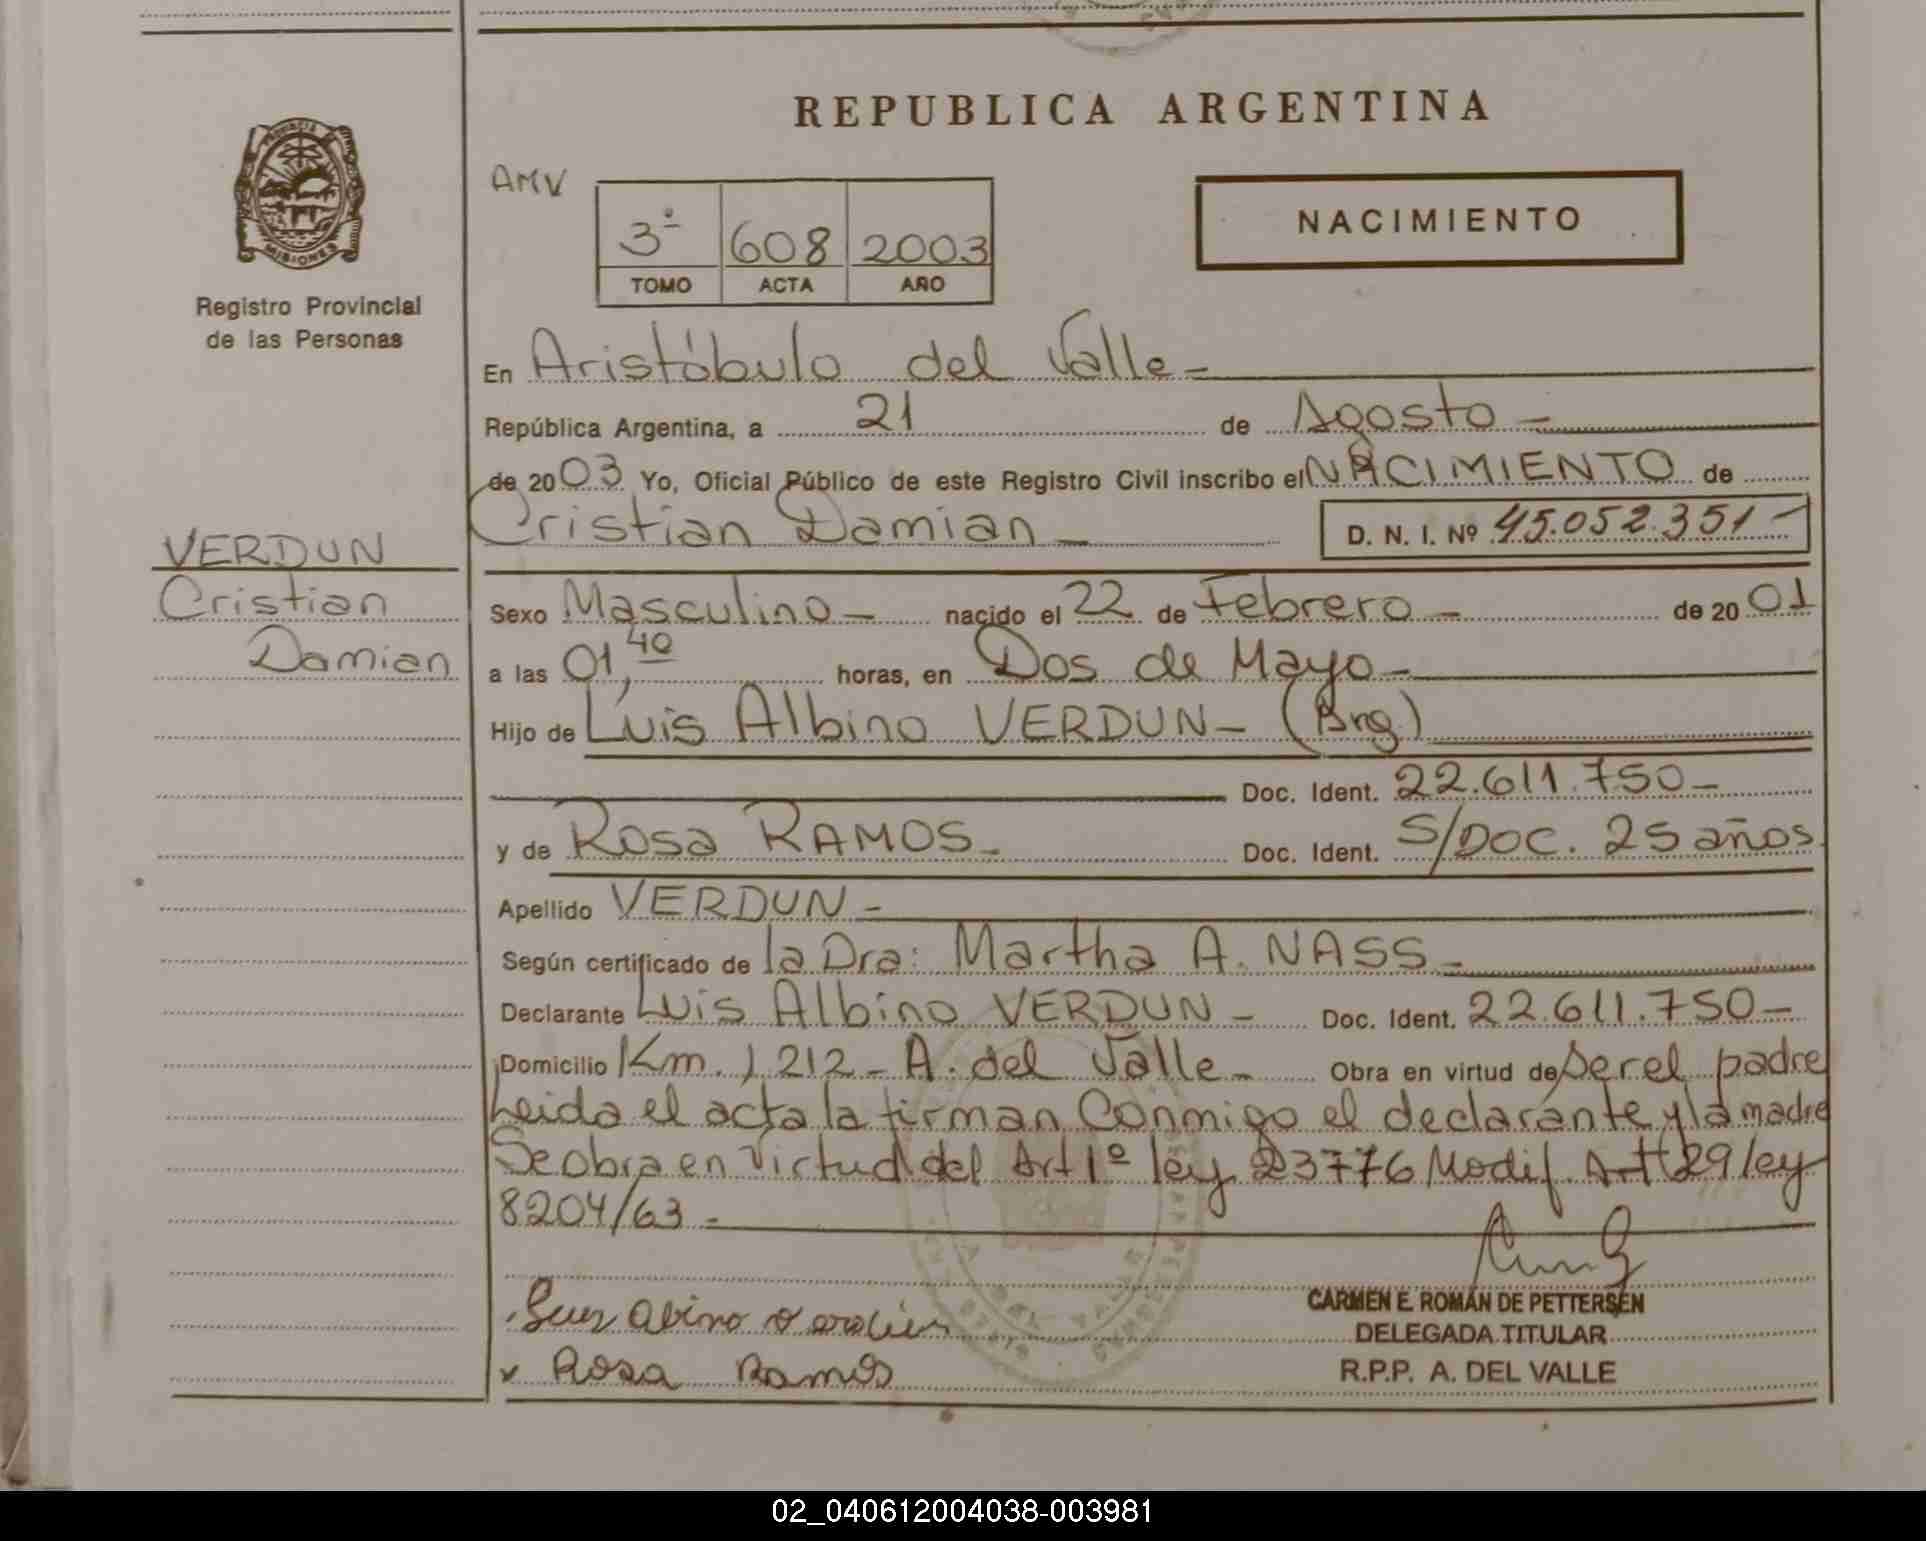 REPUBLICA ARGENTINA
PROVINCIA
MISIONES
Registro Provincial
de las Personas
AMV
3º 608 2003
TOMO ACTA AÑO
NACIMIENTO
En Aristóbulo del Valle -
República Argentina, a 21 de Agosto -
de 2003 Yo, Oficial Público de este Registro Civil inscribo el NACIMIENTO de
Cristian Damian - D. N. I. Nº 45.052.351 -
VERDUN
Cristian
Damian
Sexo Masculino - nacido el 22 de Febrero - de 2001
a las 01,40 horas, en Dos de Mayo -
Hijo de Luis Albino VERDUN - (Arg.)
Doc. Ident. 22.611.750 -
y de Rosa RAMOS - Doc. Ident. S/DOC. 25 años
Apellido VERDUN -
Según certificado de la Dra: Martha A. NASS -
Declarante Luis Albino VERDUN - Doc. Ident. 22.611.750 -
Domicilio Km. 1212 - A. del Valle - Obra en virtud de Ser el padre
Leida el acta la firman Conmigo el declarante y la madre
Se obra en Virtud del Art 1º ley 23776 Modif. Art 29 ley
8204/63 -
CARMEN E. ROMÁN DE PETTERSEN
DELEGADA TITULAR
R.P.P. A. DEL VALLE
Rosa Ramos
02_040612004038-003981